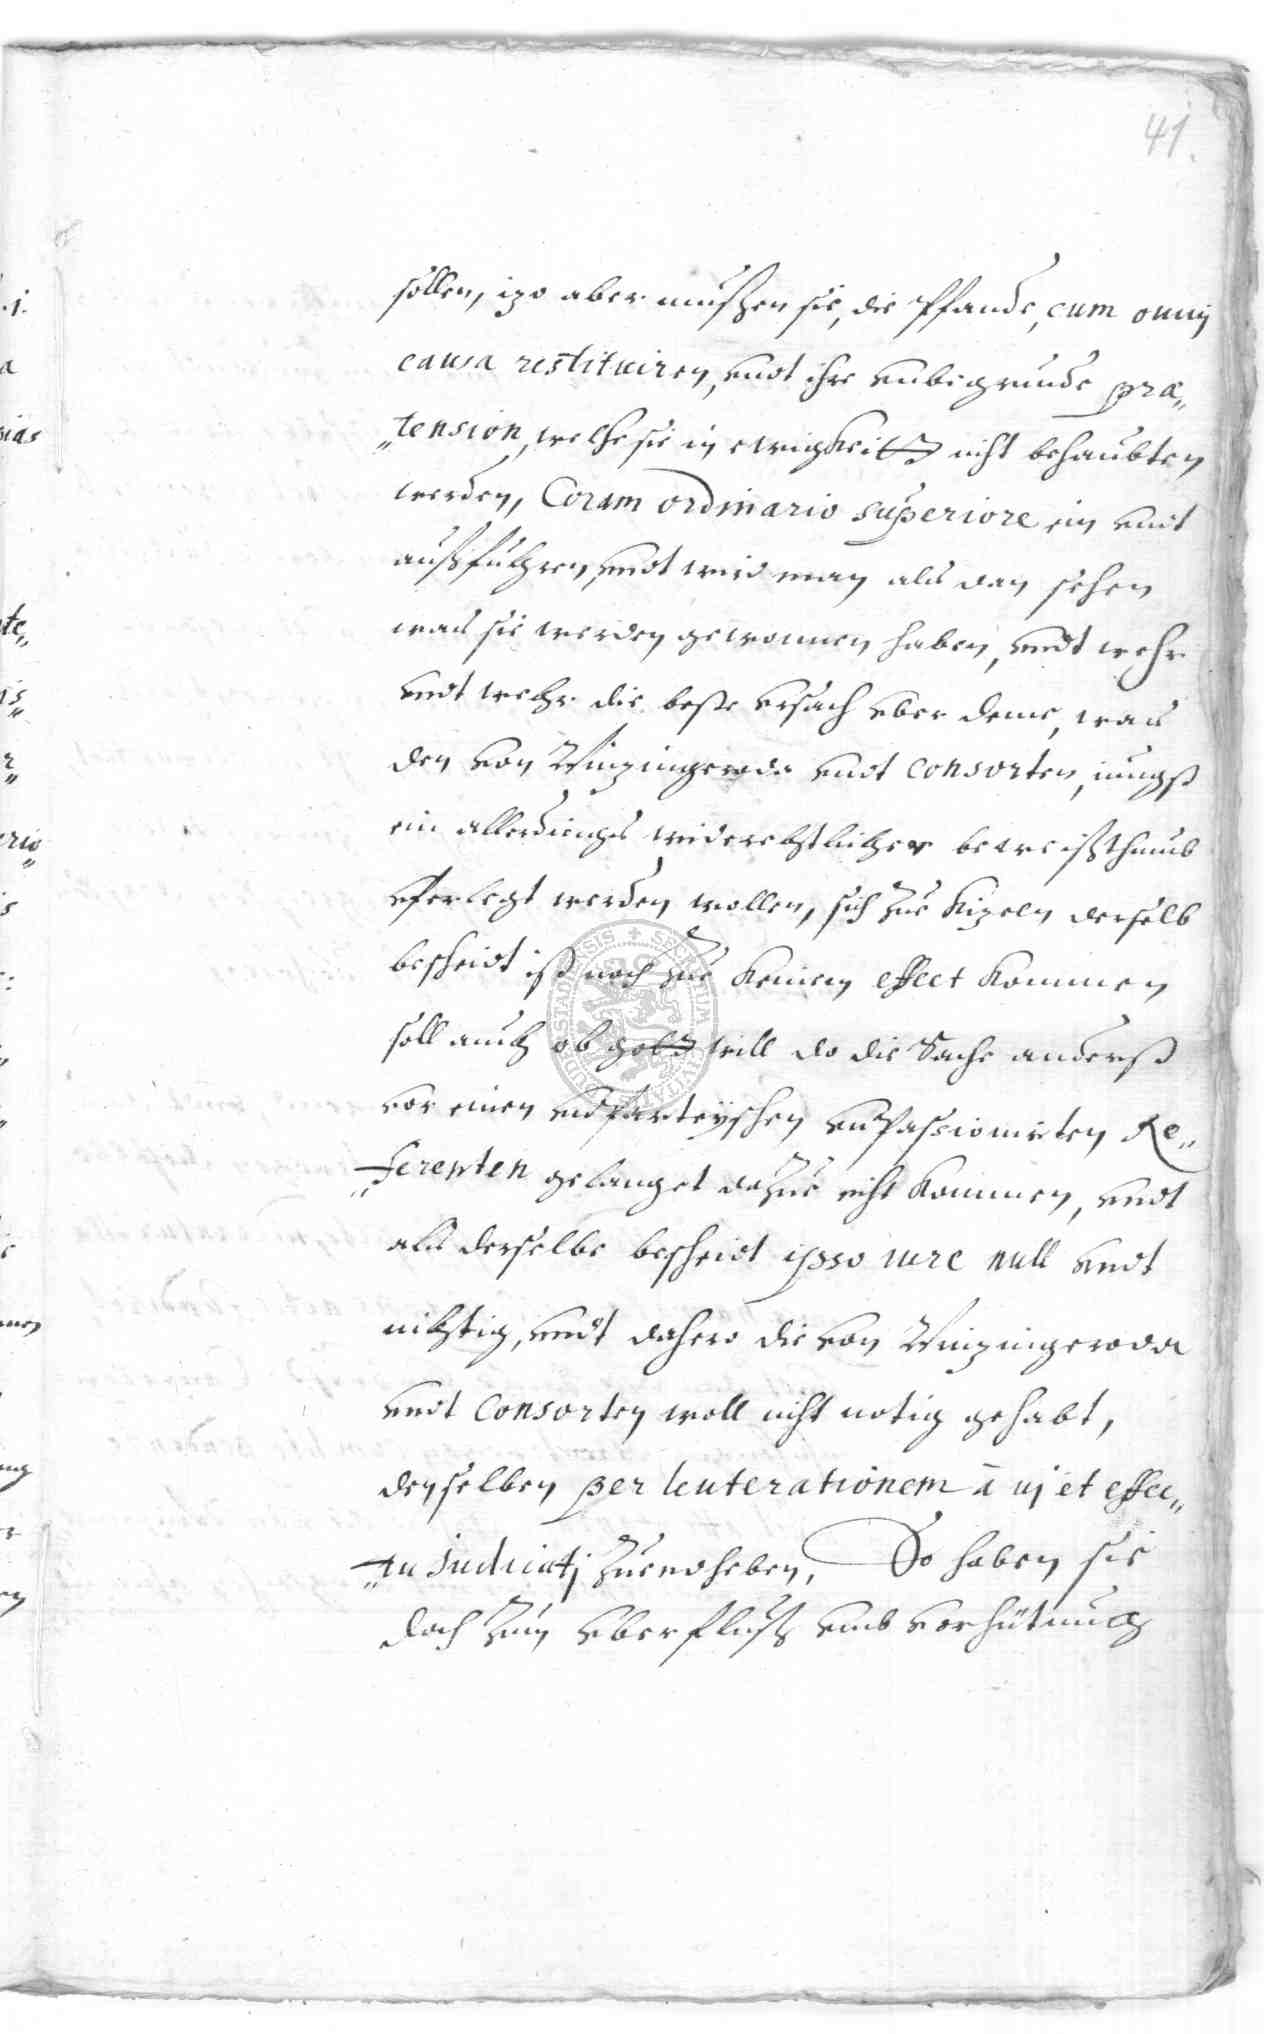 41.
sollen, izo aber mußen sie, die Pfande, cum omnj
causa restituiren, undt ihre unbegrunde præ„
„tension, welche sie in ewigkeitt nicht behaubten
werden, Coram ordinario superiore ein undt
außfuhren, undt wird man als dan sehen
was sie werden gewonnen haben, undt wehr
undt wehr die beste ursach uber deme, was
den von Winzingeroda undt Consorten, iungst
ein allerdings widerechtlicher beweißthumb
uferlegt werden wollen, sich zue kizeln derselb
bescheidt ist noch zue keinem effect kommen
soll auch ob gott will do die Sache anderst
vor einen unparteyschen unpassionirten Re„
„ferenten gelanget dazue nicht kommen, undt
als derselbe bescheidt ipso iure null undt
nichtig, undt dahero die von Winzingeroda
undt Consorten woll nicht notig gehabt,
denselben per leuterationem à vj et effec„
„tu Judicatj zuendheben, So haben sie
doch zum uberfluß umb vorhütung